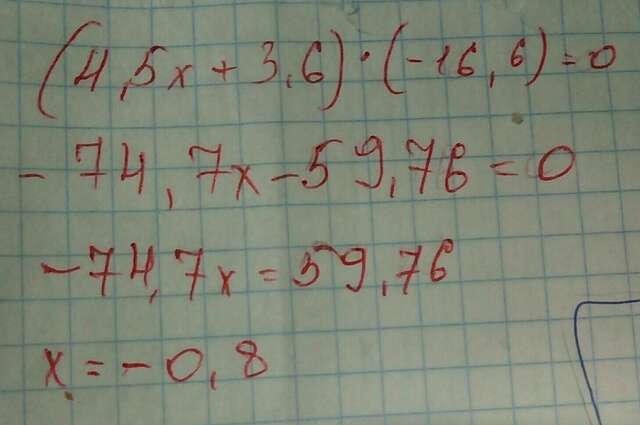 (4,5x+3,6)·(-16,6)=0
-74,7x-59,76=0
-74,7x=59,76
x=-0,8